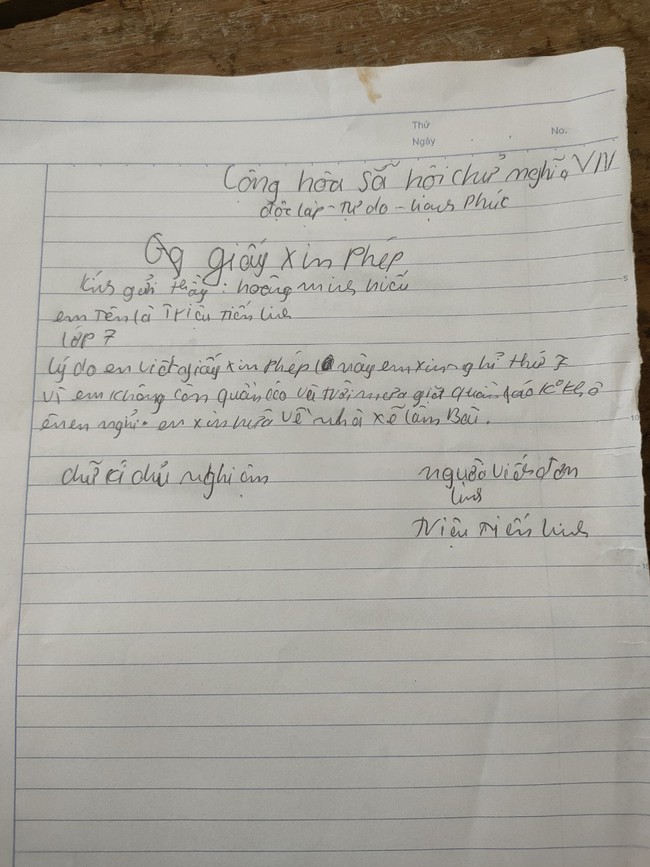 Thứ
Ngày
No.
Công hòa sã hội chủ nghĩa VN
độc lập - Tự do - hạnh phúc
giấy xin phép
kính gửi thầy : hoàng minh hiếu
em tên là Triệu Tiến linh
lớp 7
lý do em viết giấy xin phép này em xin nghỉ thứ 7
vì em không còn quần áo và trời mưa giặt quần áo kô khô
nên em nghỉ. em xin hứa về nhà xẽ làm Bài.
chữ kí chủ nghiệm
người viết đơn
linh
triệu tiến linh
5
10